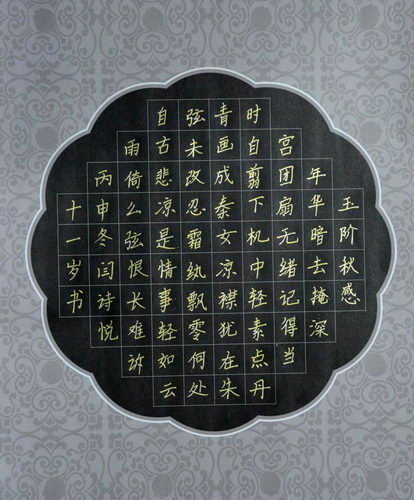 玉阶秋感
年华暗去掩深
宫团扇无绪记得当
时自翦下机中轻素点丹
青画成秦女凉襟犹在朱
弦未改忍霜纨飘零何处
自古悲凉是情事轻如云
雨倚么弦恨长难诉
丙申冬闫诗悦
十一岁书